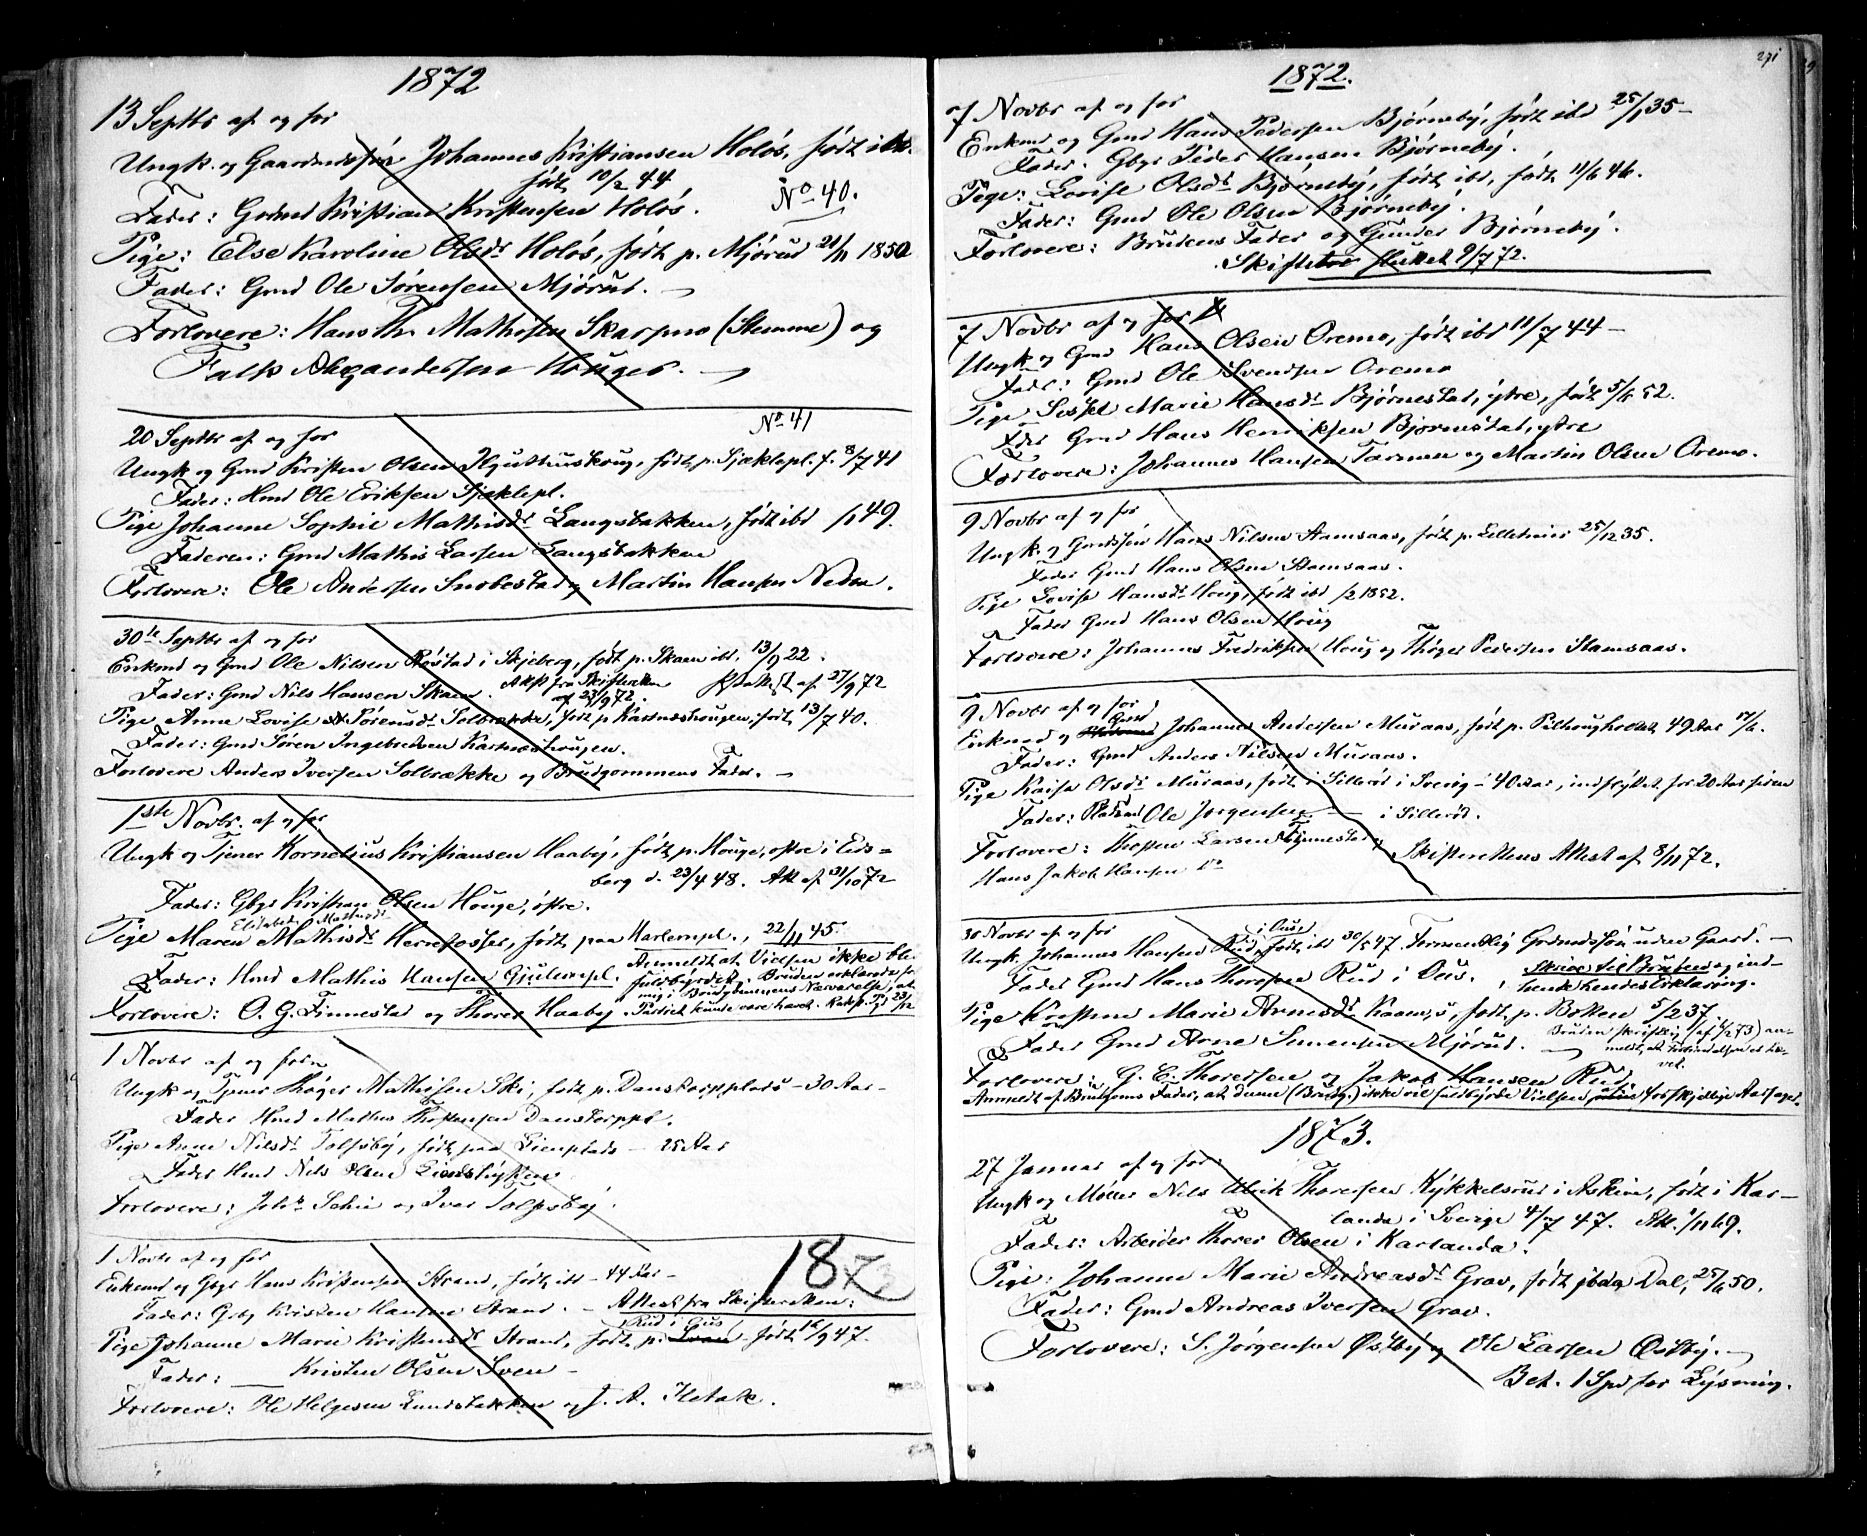 1872
13 Septbr af og for
Ungk. og Gaardmdssøn Johannes Kristiansen Holøs, født ibd.
født 10/2 44
No 40.
Fader: Grdmd Kristian Kristensen Holøs.
Pige: Else Karoline Olsdr Holøs, født p. Mjørud 21/11 1850
Fader: Gmd Ole Sørensen Mjørud.
Forlovere: Hans Th. Mathesen Skarpno (Stemme) og
Falk Alexandersen Houger.
No 41
20 Septbr af og for
Ungk og Gmd Kristen Olsen født p. Sjæklepl. f. 8/7 41
Fader: Hmd Ole Eriksen Sjæklepl.
Pige Johanne Sophie Mathisdr Langsbakken, født ibd /1 49.
Faderen: Gmd Mathis Larsen Langsbakken
Forlovere: Ole Andersen Snobestad og Martin Hansen Nedre.
30te Septbr af og for
Enkemd og Gmd Ole Nilsen Røstad i Skjeberg, født p. Skaen ibd. 13/9 22.
Fader: Gmd Nils Hansen Skaen. Attest fra Skifteretten
af 23/9 72. af 27/9 72
Pige Anne Lovise Sørensdr Solbrække, født p Kasneshougen, født 13/7 40.
Fader: Gmd Søren Ingebretsen Kasneshougen.
Forlovere Anders Iversen Solbrække og Brudgommens Fader.
1ste Novbr. af og for
Ungk og Tjener Kornelius Kristiansen Haabÿ, født p. Houge, østre i Eids=
berg d. 23/4 48. Att af 31/10 72
Fader: Gbgr Kristian Olsen Houge, østre.
Elisabeth Mathisdr
Pige Maren Mathisdr Herrefosser, født paa Harlempl., 22/11 45.
Fader: Hmd Mathis Hansen Gjulempl. Anmeldt at Vielsen ikke ble
fuldbyrdet. Bruden erklærede for
mig i Brudgommens Nærværelse, at
Forlovere: O. G. Finnestad og Thorer Haabÿ. Partiet kunde være hævet. Rakk. Pg 23/12
1 Novbr af og for
Ungk og Tjener Thøger Mathisen Ski, født p. Danskorpplads - 30 Aar -
Fader Hmd Mathis Thostensen Danskorppl.
Pige Anne Nilsdr Tolfsbÿ, født paa Lienplads - 25 Aar
Fader Hmd Nils Olsen
Forlovere: Johs Schie og Iver Tolfsbÿ.
1 Novbr af og for
1873
Enkemd og Gbgr Hans Kristensen Strand, født ibd - 44 Aar -
Fader: Gbg Kristen Hansen Strand. - Attest fra Skifteretten:
Rud i Ous
Pige Johanne Marie Kristensdr Strand, født p. Sven født 12/9 47.
Fader: Kristen Olsen Sven -
Forlovere: Ole Helgesen Lundsbakken og J. A. Hetak.
271
1872.
7 Novbr af og for
Enkemd og Gmd Hans Pedersen Bjørnebÿ, født ibd 25/1 35 -
Fader. Gbgr Peder Hansen Bjørnebÿ.
Pige: Lovise Olsdr Bjørnebÿ, født ibd, født 11/6 46.
Fader: Gmd Ole Olsen Bjørnebÿ.
Forlovere: Brudens Fader og Gunder Bjørnebÿ.
Skiftebr sluttet 9/7 72.
7 Novbr af og for
Ungk og Gmd Hans Olsen Oremo, født ibd 11/7 44 -
Fader: Gmd Ole Svendsen Oremo
Pige Sissel Marie Hansdr Bjørnestad, ÿtre, født 5/6 52.
Fder Gmd Hans Henriksen Bjørnestad, ÿtre
Forlovere: Johannes Hansen Tarmen og Martin Olsen Oremo.
9 Novbr af og for
Ungk. og Gmdssøn Hans Nilsen Stamsaas, født p. Lilleheier 25/12 35.
Fader Gmd Hans Olsen Stamsaas.
Pige Lovise Hansdr Houg, født ibd /2 1852.
Fader Gmd Hans Olsen Houg
Forlovere: Johannes Fredriksen Houg og Thøger Pedersen Stamsaas.
9 Novbr af og for
Enkemd og Johannes Andersen Muraas, født p. Pilhoughollet 49 Aar 17/6.
Fader: Gmd Anders Nilsen Muraas.
Pige Kaisa Olsdr Muraas, født i Sillerød i Sverig - 40 Aar, indflÿttet for 20 Aar siden
Fader: Pladsmd Ole Jørgensen i Sillerød.
Forlovere: Thosten Larsen Tÿnnestad og Skifterettens Attest af 8/11 72.
Hans Jakob Hansen do
30 Novbr af og for
i Ous
Ungk. Johannes Hansen Rud, født ibd 30/5 47. Formentlig Grdmdssøn uden Gaard. -
Fader Gmd Hans Thoresen Rud i Ous. Skrive til Bruden og ind-
hente hendes Erklæring.
Pige Kristine Marie Arnesdr Kaasa, ø, født p. Bokken 5/2 37
Fader Gmd Arne Simensen Mjørud. Bruden skriftlig (af /273) an-
meldt, at Forbindelsen er hæ-
vet.
Forlovere: G. E. Thoresen og Jakob Hansen Rud
Anmeldt af Brudgoms Fader, at denne (Brudg.) ikke vil fuldbÿrde Vielsen, forskjellige Aarsager.
1873.
27 Januar af og for:
Ungk og Møller Nils Ulrik Thoresen Kÿkkelsrud i Askim, født i Kar-
landa i Sverige 4/7 47. Att. 1/11 69.
Fader: Arbeider Thorer Olsen i Karlanda.
Pige: Johanne Marie Andreasdr Grav, født Dal, 25/6 50.
Fader: Gmd Andreas Iversen Grav.
Forlovere: S. Jørgensen Østbÿ og Ole Larsen Østbÿ.
Bet. 1 Spd for Lÿsning.